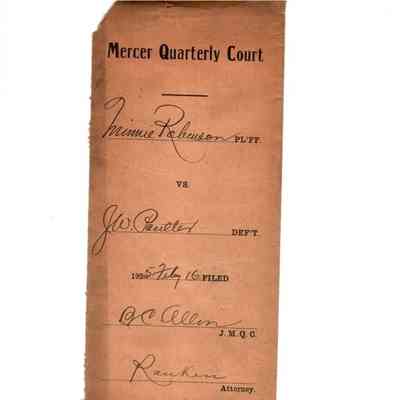 Mercer Quarterly Court
Minnie Robinson PL'FF
VS.
J.W. DEF'T.
1925 Feby 16 FILED
Allen
J. M. Q. C.
Rankin
Attorney.